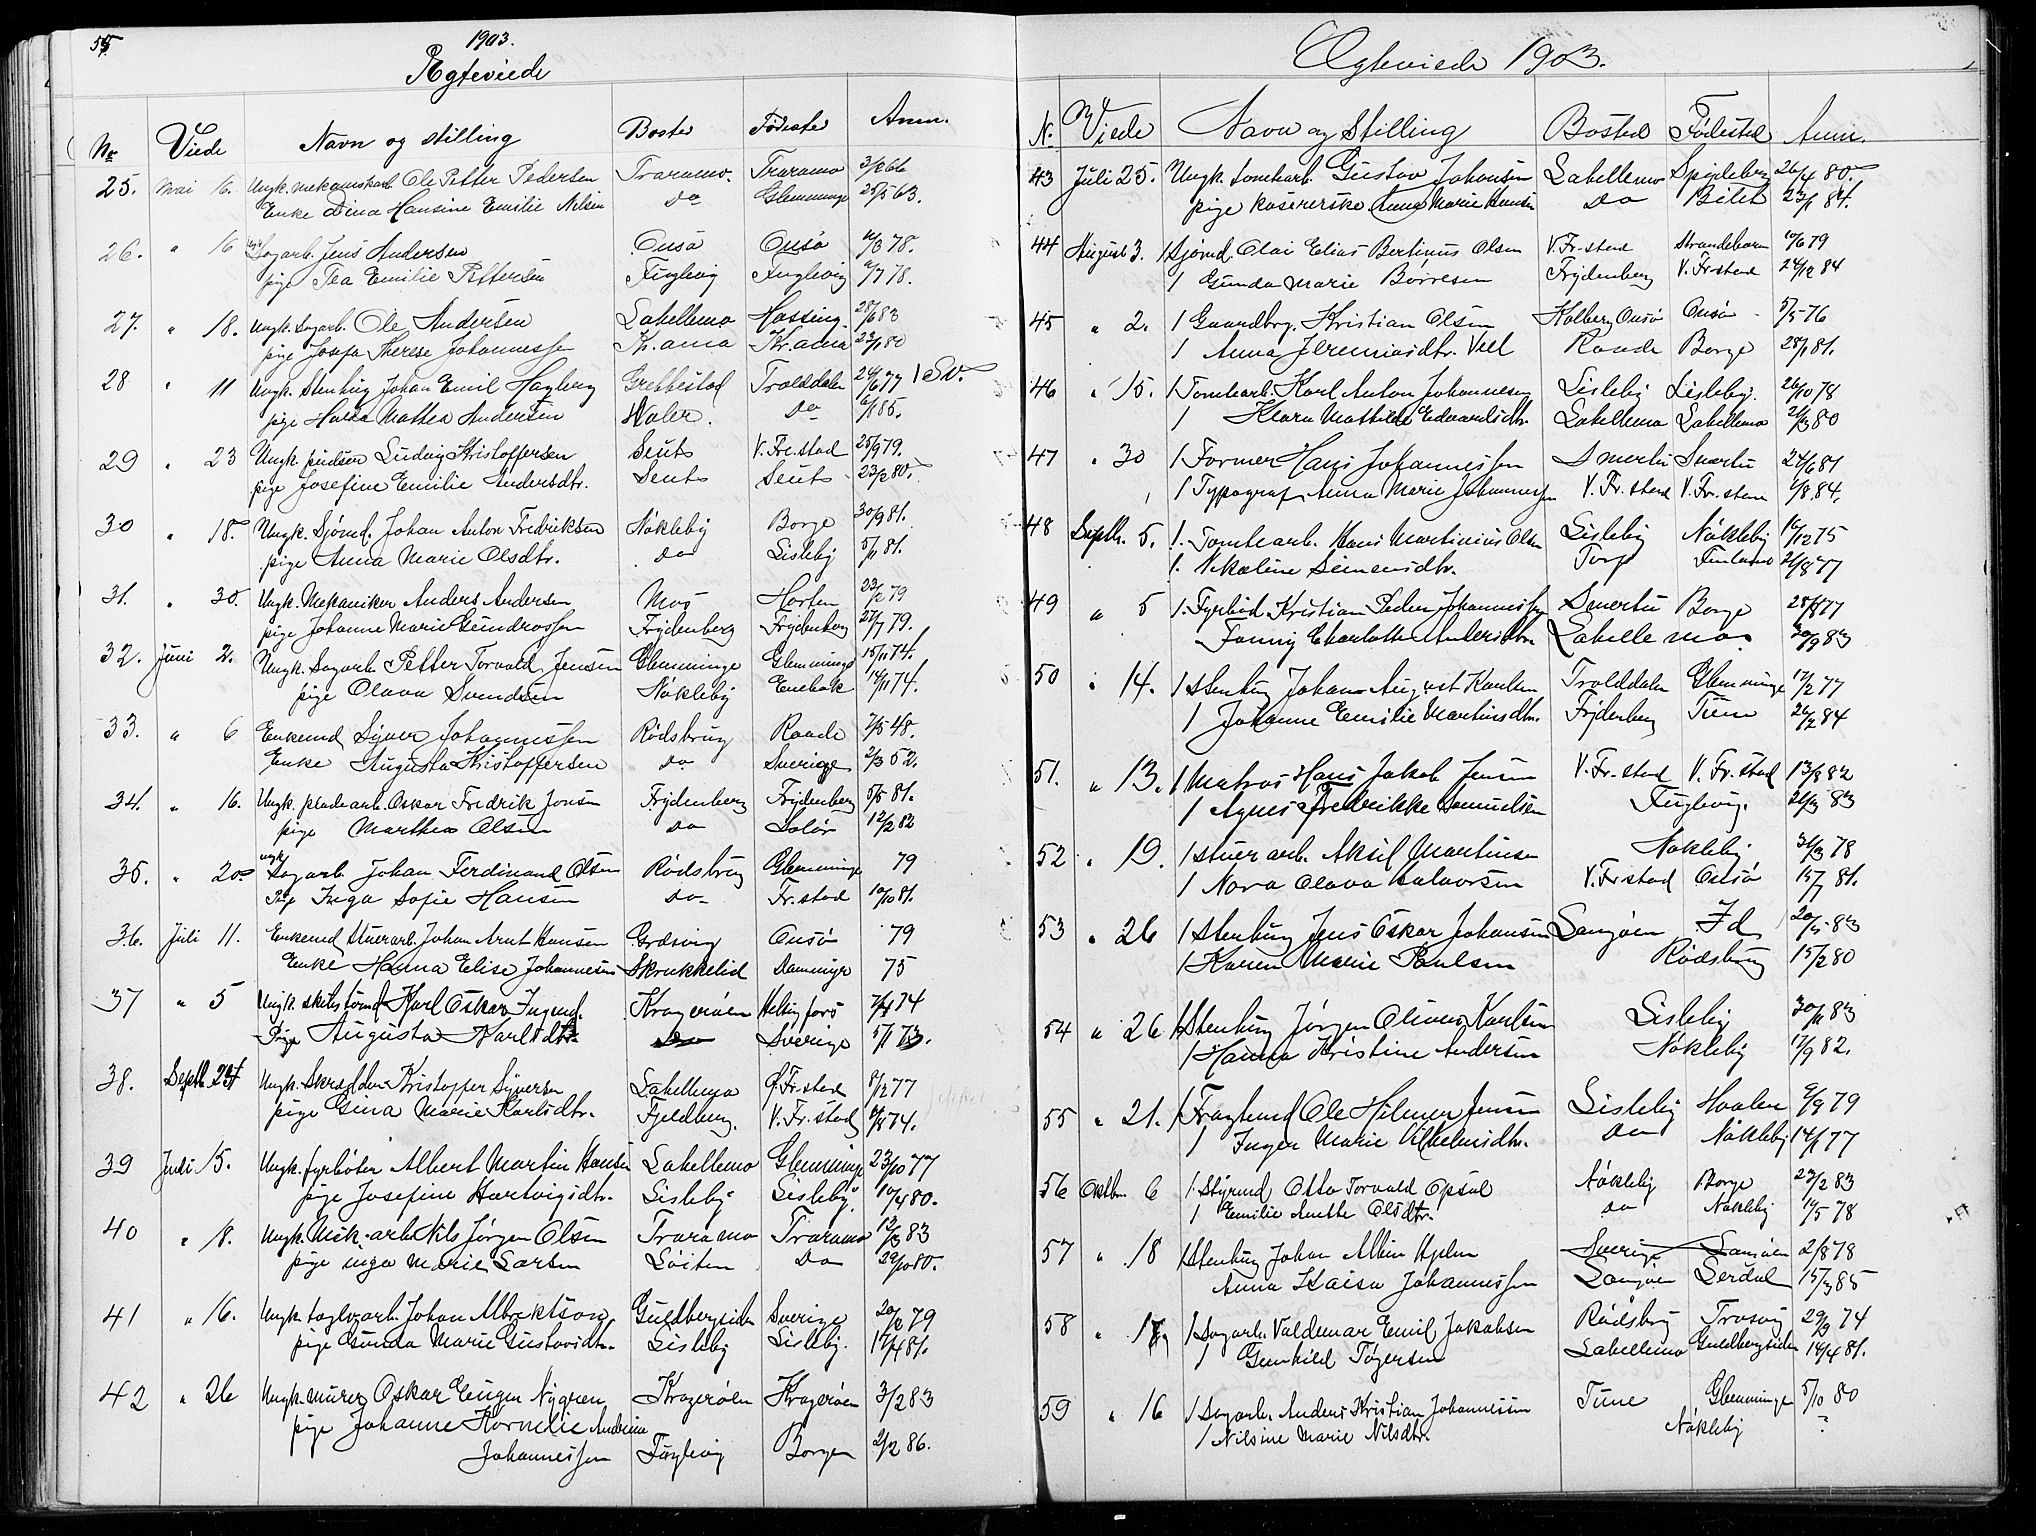 55
1903.
Ægteviede
No Viede Navn og stilling Bosted Fødested Anm.
25. Mai 16. Ungk. mekaniskarb. Ole Petter Pedersen Traramo. Traramo 3/2 66
Enke Dina Hansine Emilie Nilsen Do Glemminge 25/5 63.
26. " 16 Ungk. Sagarb. Jens Andersen Onsø Onsø 78.
pige Tea Emilie Pettersen Fuglevig Fuglevig 78.
27. " 18. Ungk. Sagarb. Ole Andersen Labellemo Hassing. 28/6 83
pige Josefa Therese Johannessen Kr.ania Kr.ania 22/1 80
28 " 11 Ungk. Stenhug Johan Emil Hagberg Grebbestad Trolddalen 24/6 77 1 Sv.
pige Hulda Mathea Andersen Hvaler. Do 6/1 85.
29 " 23 Ungk. Ludvig Kristoffersen Seut V. Fre.stad 25/9 79.
pige Josefine Emilie Andersdtr. Seut Seut 23/2 80.
30 " 18. Ungk. Sjømd. Johan Anton Fredriksen Nøkleby Borge 30/9 81.
pige Anna Marie Olsdtr. do Lisleby 5/1 81.
31. " 30. Ungk. Mekaniker Anders Andersen Mos Horten 23/2 79
pige Johanne Marie Gundrossen Frydenberg Frydenberg 27/7 79.
32. Juni 2. Ungk. Sagarb. Petter Torvald Jensen Glemminge Glemminge 15/11 74.
pige Olava Svendsen Nøkleby Enebak 14/11 74.
33. " 6 Enkemd Syver Johannessen Rødsbrug Raade 7/5 48.
Enke Augusta Kristoffersen do Sverige 2/3 52.
34. " 16. Ungk. pladearb. Oskar Fredrik Jonsen Frydenberg Frydenberg 5/5 81.
pige Marthea Olsen do Solør 12/2 82
35. " 20 ungk. Sagarb. Johan Ferdinand Olsen Rødsbrug Glemminge 79
Pige Inga Sofie Hansen do Fr.stad 10/10 81.
36. Juli 11. Enkemd Stuerarb. Johan Arnt Hansen Græsvig Onsø 79
Enke Hanna Elise Johannesen Skrukkelid Damminge 75
37 " 5 Ungk. Karl Oskar Kragerøen Helsingfors 74
Pige Augusta Karlsdtr. do Sverige 5/1 73.
38. Septb. 24 Ungk. Skrædder Kristoffer Syversen Labellemo Ø. Fr.stad 8/12 77
pige Gina Marie Karlsdtr. Fjeldberg. V. Fr.stad 74.
39 Juli 15. Ungk. fyrbøter Albert Martin Hansen Labellemo Glemminge 23/10 77
pige Josefine Hartvigsdtr. Lisleby Lisleby 10/4 80.
40 " 18. Ungk. Mek. arb. Nils Jørgen Olsen Traramo Traramo 12/3 83
pige Inga Marie Larsen Løiten Do 29/10 80.
41 " 16. Ungk. teglv.arb. Johan Albrektson Guldbergsiden Sverige 79
pige Gunda Marie Gustavsdtr. Lisleby Lisleby. 17/4 81.
42 " 26 Ungk. murer Oskar Eugen Nygren Kragerøen Kragerøen 3/2 83
pige Johanne Kornelie Andrine
Johannessen Fuglevig Borgen 2/2 86.
Ægteviede 1903.
N. Viede Navn og Stilling Bosted Fødested Anm.
43 Juli 25. Ungk. tomtearb. Gustav Johansen Labellemo Spjeleberg 26/4 80.
pige kasererske Anna Marie Hansen Do Bilet 23/1 84.
44 August 3. 1 Sjømd. Olai Elias Bertinus Olsen V.Fr.stad Strandebarm 10/6 79
1 Gunda Marie Børresen Frydenberg V. Fr.stad 24/12 84
45 " 2. 1 Gaardbrg. Kristian Olsen Kolberg Onsø Onsø 5/5 76
1 Anna Jeremiasdtr. Vell Raade Borge 28/1 81.
46 " 15. 1 Tomtearb. Karl Anton Johannesen Lisleby Lisleby. 26/10 78
1 Klara Mathilde Edvardsdtr. Labellemo Labellemo 80
47 " 30 1 Former Hans Johannessen Smertu Smertu 24/6 81
1 Typograf Anna Marie Johannessen V. Fr.stad V. Fr.stad 84.
48 Septb. 5. 1. Tomtearb. Hans Martinius Olsen Lisleby Nøkleby 16/12 75
1. Nikoline Semensdtr. Torp 77
49 " 5 1. Fyrbød. Kristian Peder Johannessen Smertu Borge 77
Fanny Charlotte Andersdtr. Labellemo. 30/9 83
50 " 14. 1 Stenhug Johan August Karlsen Trolddalen Glemminge 12/2 77
1 Johanne Emilie Martinsdtr. Frydenberg Tune 26/2 84
51. " 13. 1 Matros Hans Jakob Jensen V. Fr.stad V. Fr.stad 13/8 82
1 Agnes Fredrikke Samuelsen Fuglevig. 83
52 " 19. 1 Stuerarb. Aksel Martinsen Nøkleby 78
1 Nora Olava Halvorsen V.Fr.stad Onsø 15/7 81.
53 " 26 1 Stenhug Jens Oskar Johansen Langøen Id 20/5 83
1 Karen Marie Paulsen Rødsbrug 15/2 80
54 " 26 1 Stenhug Jørgen Olines Karlsen Lisleby 30/11 83
1 Hanna Kristine Andersen Nøkleby 17/9 82.
55 " 21. 1 Fragtemd Ole Hilmer Jensen Lisleby Hvaler 9/9 79
1 Inger Marie Vilhelmsdtr. do Nøkleby 14/1 77
56 Oktbr. 6 1. Styrmd Otto Torvald Opsal Nøkleby Borge 23/2 83
1 Emilie Anette Olsdtr. do Nøkleby 14/5 78
57 " 18 1 Stenhug Johan Albin Hjelm Sverige Langøen 2/8 78
Anna Kaisa Johannessen Langøen Lerdal 15/3 85
58 " 17 1 Sagarb. Valdemar Emil Jakobsen Rødsbrug Trosvig 29/9 74
1 Gunhild Tøgersen Labellemo Guldbergsiden 14/4 81.
59 " 16 1 Sagarb. Anders Kristian Johannesen Tune Glemminge 5/10 80
1 Nilsine Marie Nilsdtr. Nøkleby ?